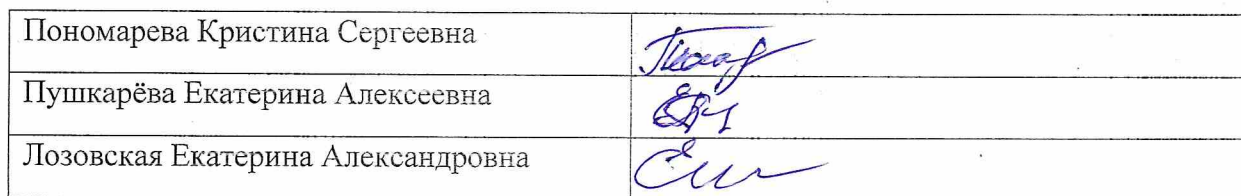 Пономарева Кристина Сергеевна
Пушкарёва Екатерина Алексеевна
Лозовская Екатерина Александровна